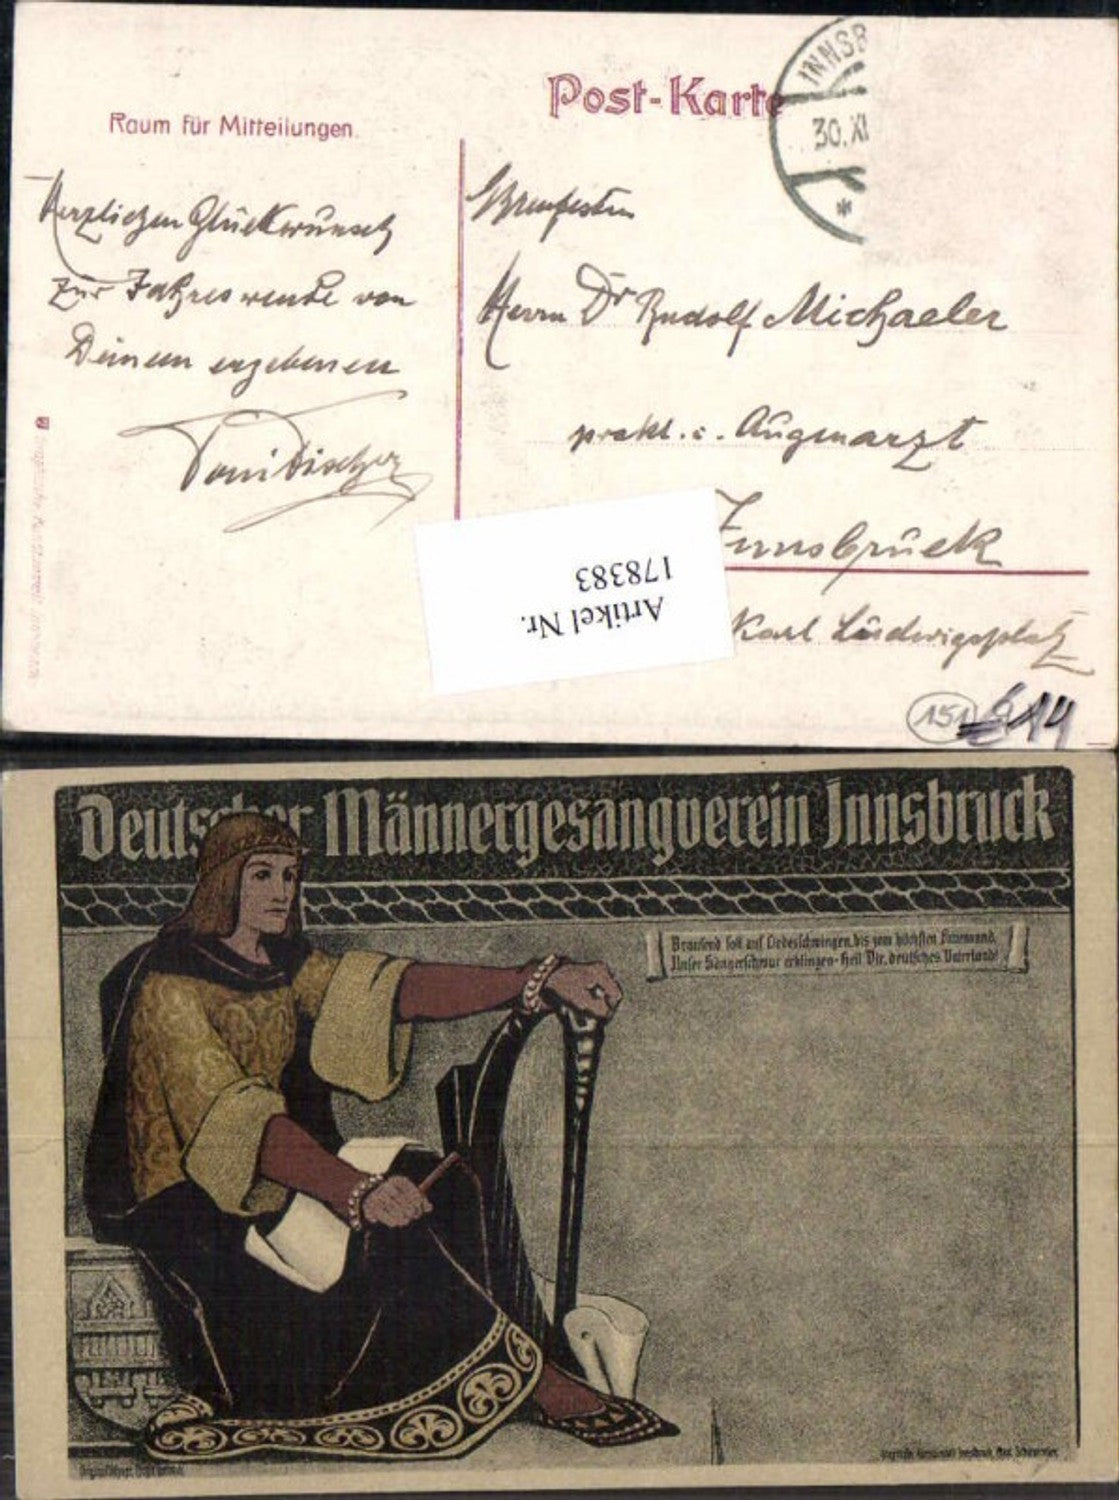 Post-Karte
Raum für Mitteilungen.
INNSB
30.XI
*
Herzlichen Glückwunsch
zur Jahreswende von
Deinem ergebenen
Herrn Dr Rudolf Michaeler
prakt. Augenarzt
Innsbruck
Karl Ludwigsplatz
Artikel Nr.
178383
151
Deutscher Männergesangverein Innsbruck
Brausend soll auf Liedesschwingen, bis zum höchsten
Unser Sängerschwur erklingen - Heil Dir, deutsches Vaterland!